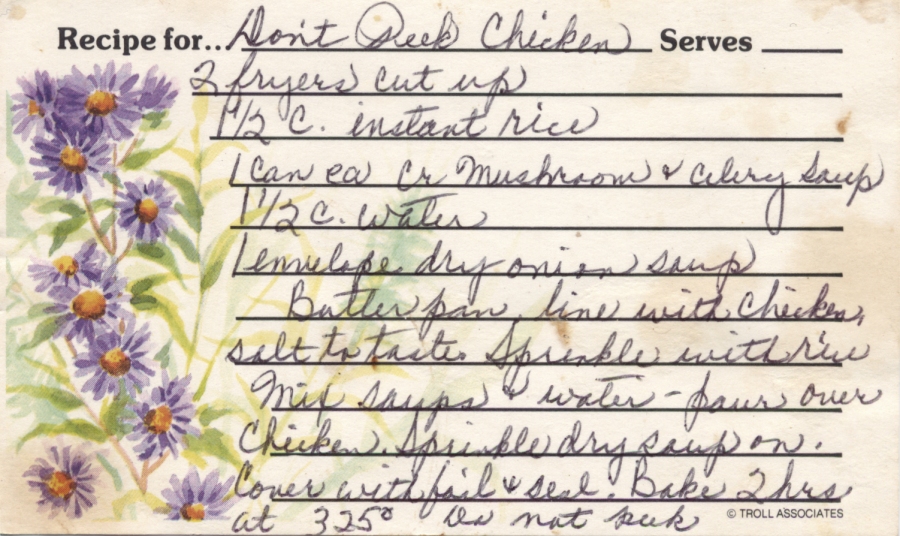 Recipe for... Don't Peek Chicken Serves
2 fryers cut up
1 1/2 c. instant rice
1 can ea cr Mushroom & celery soup
1 1/2 c. water
1 envelope dry onion soup
Butter pan, line with chicken,
salt to taste. Sprinkle with rice
Mix soups & water - pour over
Chicken. Sprinkle dry soup on.
Cover with foil & seal. Bake 2 hrs
at 325° Do not peek
© TROLL ASSOCIATES